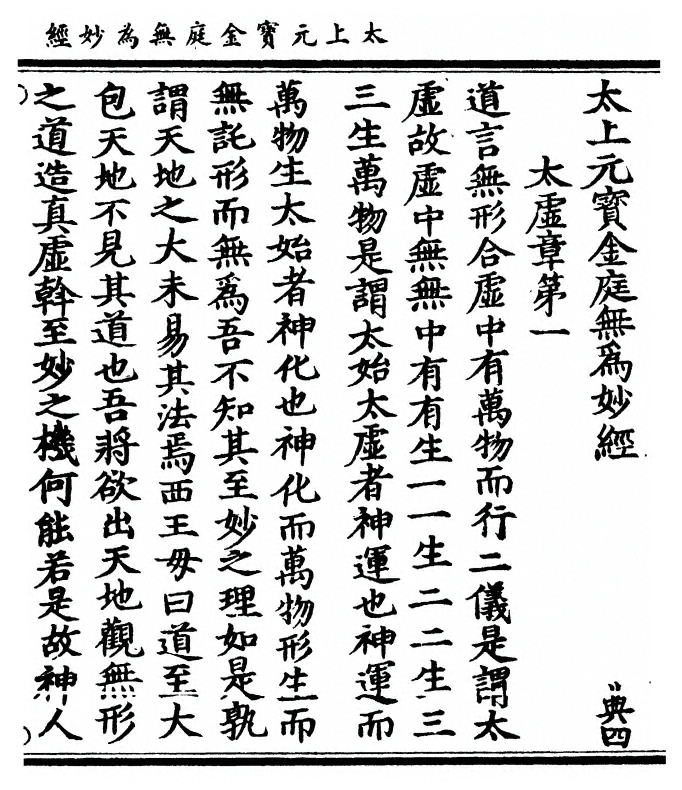 太上元寶金庭無為妙經
太上元寶金庭無爲妙經
典四
太虛章第一
道言無形合虛中有萬物而行二儀是謂太
虛故虛中無無中有有生一一生二二生三
三生萬物是謂太始太虛者神運也神運而
萬物生太始者神化也神化而萬物形生而
無託形而無爲吾不知其至妙之理如是孰
謂天地之大未易其法焉西王母曰道至大
包天地不見其道也吾將欲出天地觀無形
之道造真虛斡至妙之機何能若是故神人